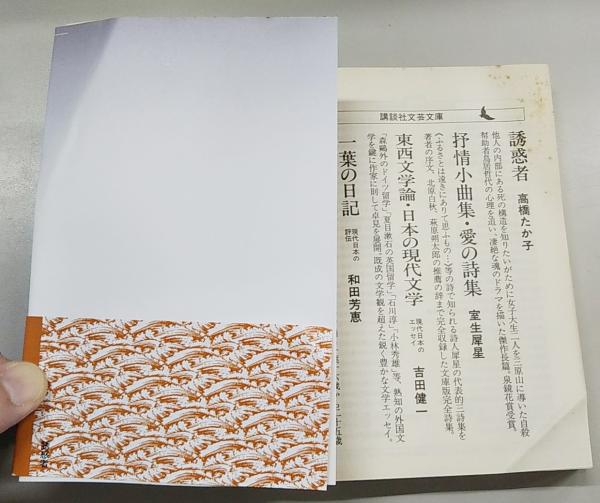 講談社文芸文庫
誘惑者 高橋たか子
他人の内部にある死の構造を知りたいがために女子大生二人を三原山に導いた自殺
幇助者鳥居哲代の心理を追い、凄絶な魂のドラマを描いた傑作長篇。泉鏡花賞受賞。
抒情小曲集・愛の詩集 室生犀星
〈ふるさとは遠きにありて思ふもの…〉等の詩で知られる詩人犀星の代表的三詩集を
著者の序文、北原白秋、萩原朔太郎の推薦の辞まで完全収録した文庫版完全詩集。
東西文学論・日本の現代文学 現代日本のエッセイ 吉田健一
「森鷗外のドイツ留学」「夏目漱石の英国留学」「石川淳」「小林秀雄」等、熟知の外国文
学を鍵に作家に則して卓見を展開。既成の文学観を超えた鋭く豊かな文学エッセイ。
一葉の日記 現代日本の評伝 和田芳恵